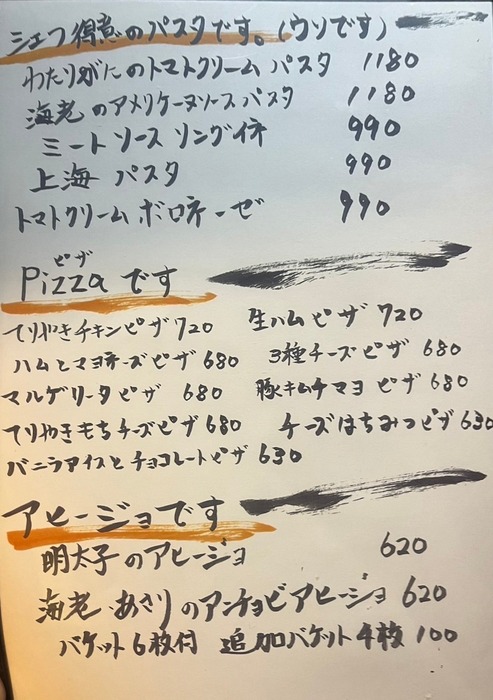 シェフ得意のパスタです。(ウソです)
わたりがにのトマトクリームパスタ 1180
海老のアメリケーヌソースパスタ 1180
ミートソースリングイネ 990
上海パスタ 990
トマトクリームボロネーゼ 990
ピザ
Pizzaです
てりやきチキンピザ 720 生ハムピザ 720
ハムとマヨネーズピザ 680 3種チーズピザ 680
マルゲリータピザ 680 豚キムチマヨピザ 680
てりやきもちチーズピザ 680 チーズはちみつピザ 630
バニラアイスとチョコレートピザ 630
アヒージョです
明太子のアヒージョ 620
海老、あさりのアンチョビアヒージョ 620
バケット6枚付 追加バケット4枚 100